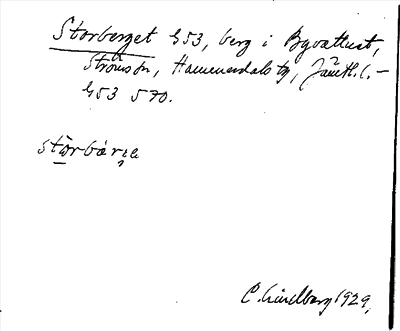 Storberget 453, berg i Byvattnet,
Ströms sn, Hammerdals tg, Jämtl. l. –
453 570.
stȯrbárje
C. Lindberg 1929.